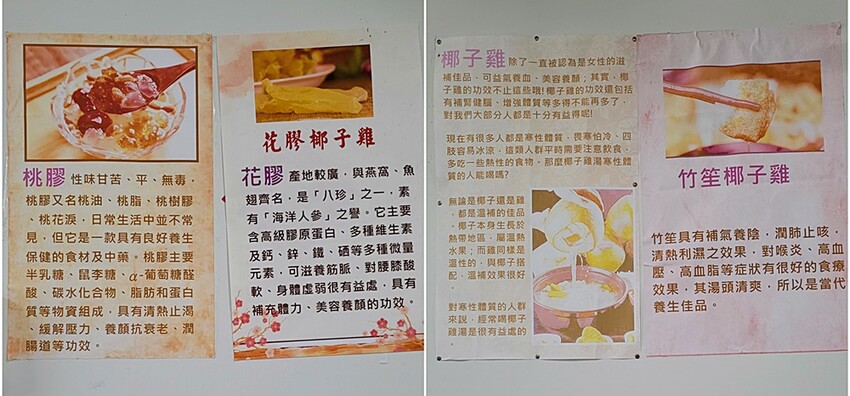 桃膠 性味甘苦、平、無毒，
桃膠又名桃油、桃脂、桃樹膠
、桃花淚，日常生活中並不常
見，但它是一款具有良好養生
保健的食材及中藥。桃膠主要
半乳糖、鼠李糖、α-葡萄糖醛
酸、碳水化合物、脂肪和蛋白
質等物資組成，具有清熱止渴
、緩解壓力、養顏抗衰老、潤
腸道等功效。
花膠椰子雞
花膠 產地較廣，與燕窩、魚
翅齊名，是「八珍」之一，素
有「海洋人參」之譽。它主要
含高級膠原蛋白、多種維生素
及鈣、鋅、鐵、硒等多種微量
元素，可滋養筋脈、對腰膝酸
軟、身體虛弱很有益處，具有
補充體力、美容養顏的功效。
椰子雞 除了一直被認為是女性的滋
補佳品，可益氣養血、美容養顏；其實，椰
子雞的功效不止這些哦！椰子雞的功效還包括
有補腎健腦、增強體質等多得不能再多了，
對我們大部分人都是十分有益得呢!
現在有很多人都是寒性體質，畏寒怕冷、四
肢容易冰涼，這類人群平時需要注意飲食，
多吃一些熱性的食物。那麼椰子雞湯寒性體
質的人能喝嗎?
無論是椰子還是雞
，都是溫補的佳品
。椰子本身生長於
熱帶地區，屬溫熱
水果；而雞同樣是
溫性的，與椰子搭
配，溫補效果很好
。
對寒性體質的人群
來説，經常喝椰子
雞湯是很有益處的
。
竹笙椰子雞
竹笙具有補氣養陰，潤肺止咳，
清熱利濕之效果，對喉炎、高血
壓、高血脂等症狀有很好的食療
效果，其湯頭清爽，所以是當代
養生佳品。